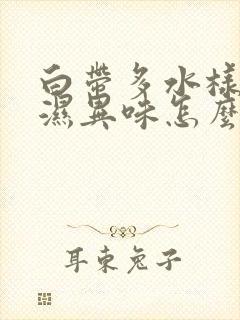 白帶多水樣
濕異味怎麼
耳東兔子